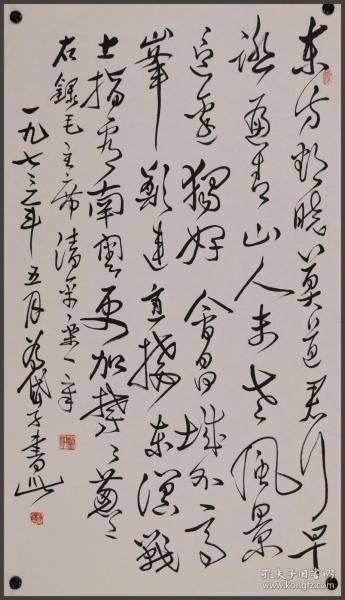 东方欲晓莫道君行早
踏遍青山人未老风景
这边独好会昌城外高
峰颠连直接东溟战
士指看南粤更加郁郁葱葱
右录毛主席清平乐一章
一九七三年五月
书
孔夫子旧书网
book.kongfz.com